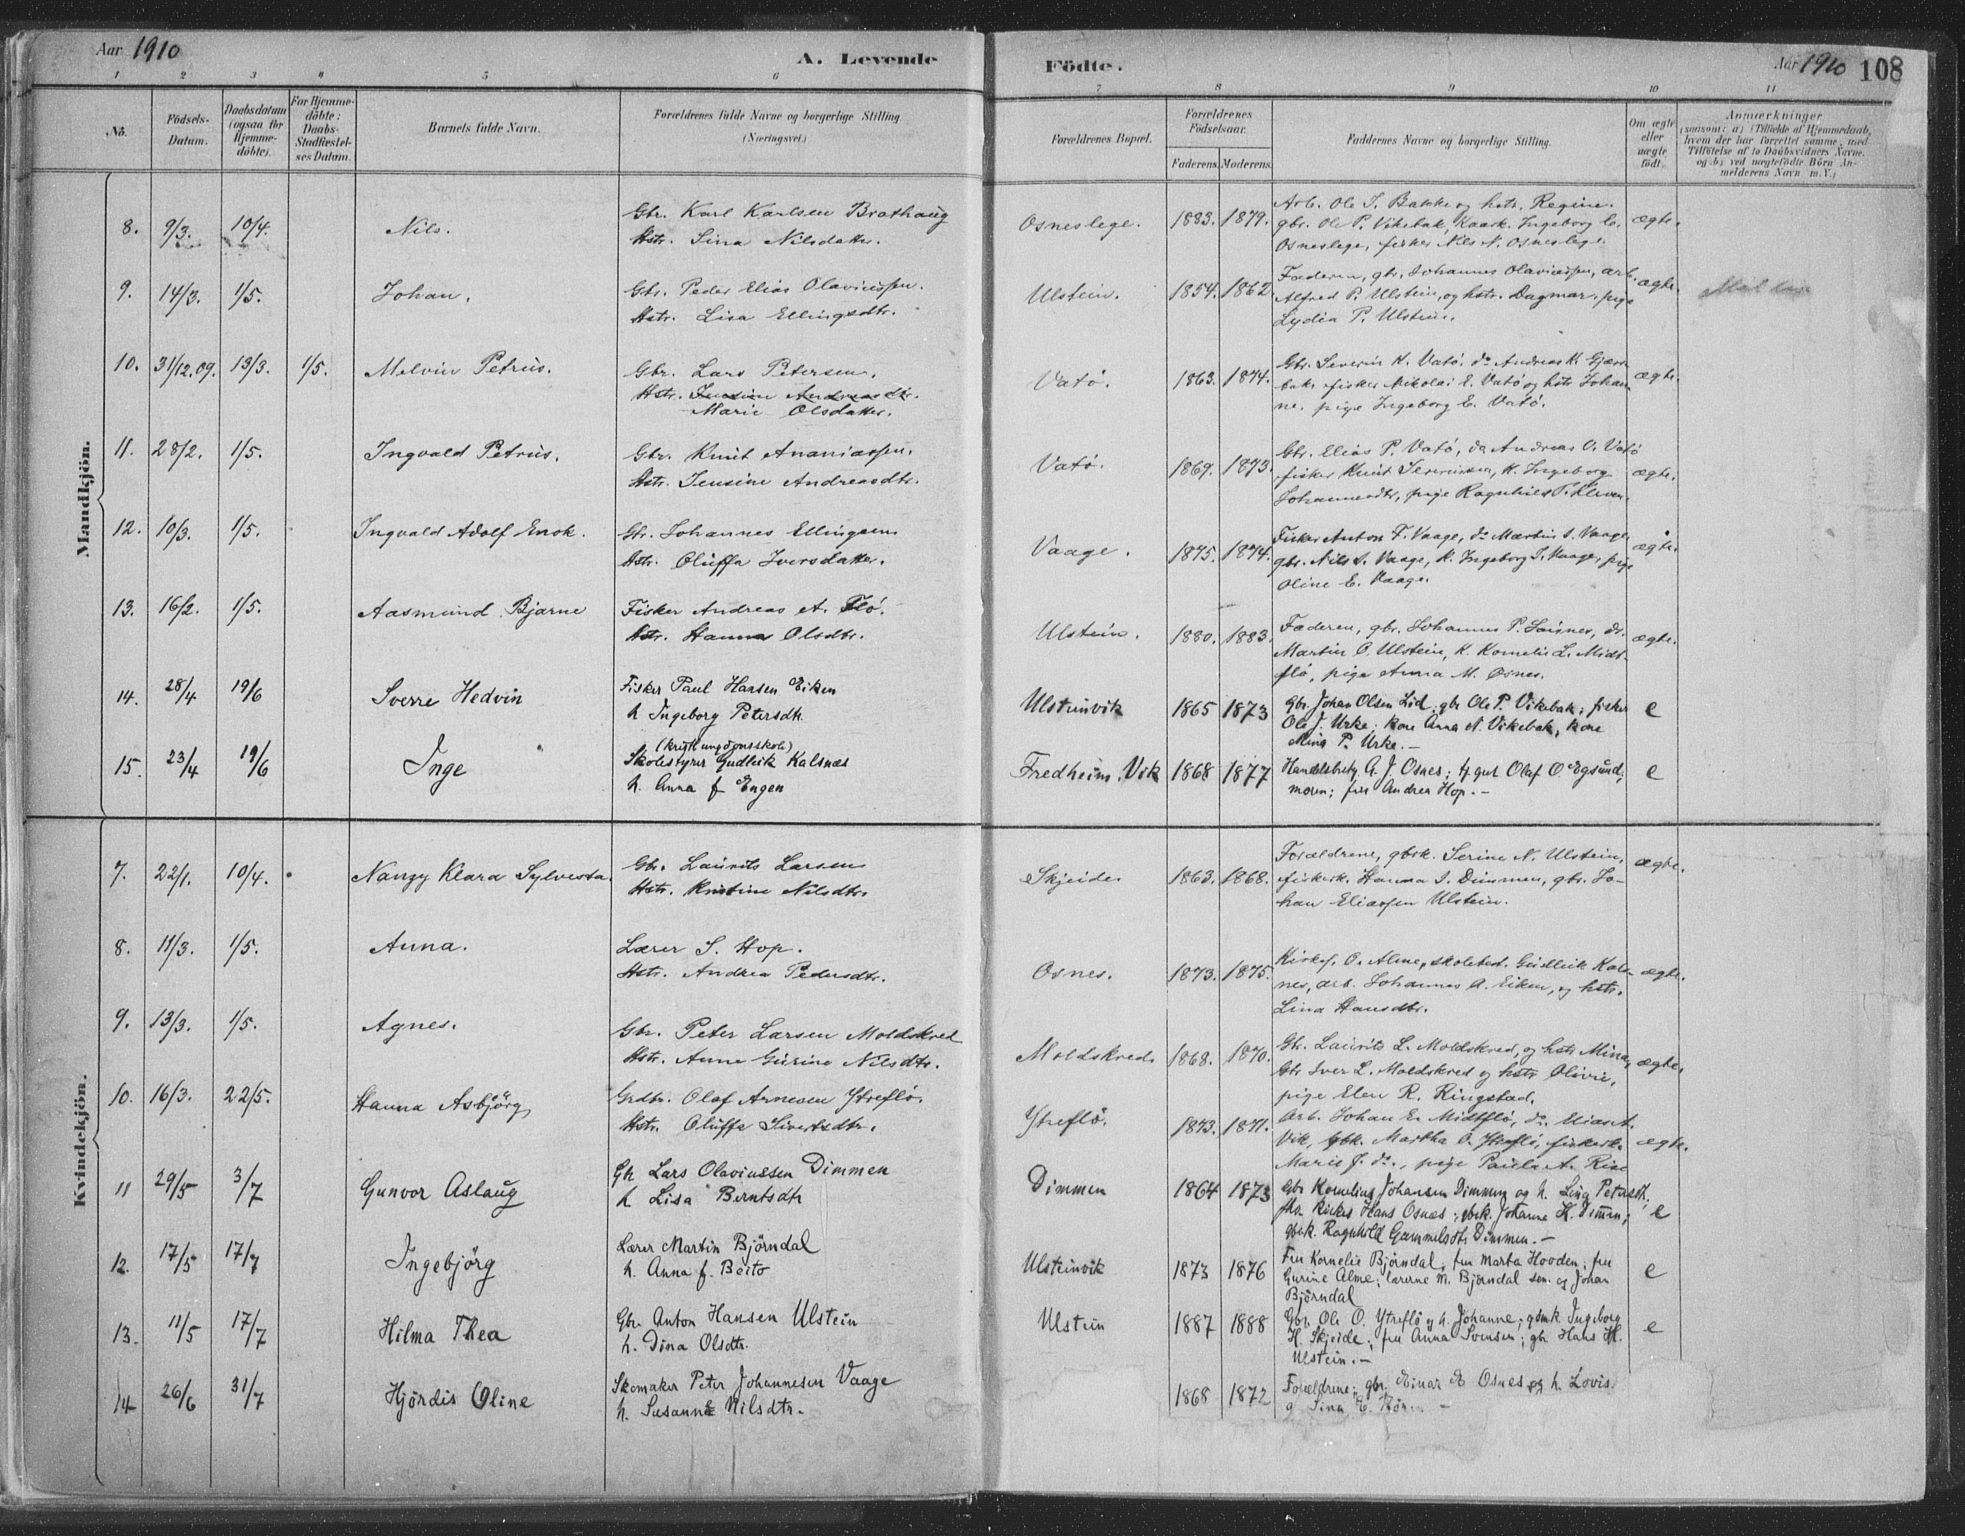 Aar 1910
A. Levende
Födte.
Aar 1910
108
1 2 3 4 5 6 7 8 9 10 11
No.
Födsels-
Datum.
Daabsdatum
(ogsaa for
Hjemme-
döbte).
For Hjemme-
döbte:
Daabs-
Stadfæstel-
ses Datum.
Barnets fulde Navn.
Forældrenes fulde Navne og borgerlige Stilling
(Næringsvei)
Forældrenes Bopæl.
Forældrenes
Födselsaar.
Faderens. Moderens.
Faddernes Navne og borgerlige Stilling.
Om ægte
eller
uægte
födt.
Anmærkninger
(saasom: a) (Tilfælde af Hjemmedaab,
hvem der har forrettet samme, med
Tilföielse af to Daabsvidners Navne,
og b) ved uægtefödte Börn An-
melderens Navn m. V.)
Mandkjön.
8. 9/3. 10/4. Nils.
Gbr. Karl Karlsen Brathaug
Hstr. Sina Nilsdatter.
Osneslege. 1883. 1879.
Arb. Ole I. Bakke og hstr. Regine.
gbr. Ole P. Vikebak, Kaark. Ingeborg L.
Osneslege, fisker Nils N. Osneslege.
ægte.
9. 14/3. 1/5. Johan.
Gbr. Peder Elias Olaviussen.
Hstr. Lisa Ellingsdtr.
Ulstein. 1854. 1862.
Faderen, gbr. Johannes Olaviussen, arb.
Alfred P. Ulstein, og hstr. Dagmar, pige
Lydia P. Ulstein.
ægte.
10. 31/12.09. 13/3. 1/5. Melvin Petrus.
Gbr. Lars Petersen.
Hstr. Jensine Andreasdtr.
Marie Olsdatter.
Vatö. 1863. 1874.
Gbr. Severin K. Vatö. do Andreas K. Gjers-
bak, fisker Nikolai E. Vatö og hstr Johan-
ne, pige Ingeborg E. Vatö.
ægte.
11. 28/2. 1/5. Ingvald Petrus.
Gbr. Knut Ananiassen.
Hstr. Jensine Andreasdtr.
Vatö. 1869. 1873.
Gbr. Elias P. Vatö, do Andreas O. Vatö
fisker Knut Severinsen, K. Ingeborg
Johannesdtr, pige Ragnhild P. Kleven.
ægte.
12. 10/3. 1/5. Ingvald Adolf Enok.
Gbr. Johannes Ellingsen
Hstr. Oluffa Iversdatter.
Vaage. 1875. 1874.
Fisker Anton F. Vaage, do Martin S. Vaage,
gbr. Nils S. Vaage, K. Ingeborg I. Vaage, pige
Oline E. Vaage.
ægte.
13. 16/2. 1/5. Aasmund Bjarne
Fisker Andreas A. Flö.
Hstr. Hanna Olsdtr.
Ulstein. 1880. 1883.
Faderen, gbr. Johannes P. Saisnes, do.
Martin O. Ulstein, K. Kornelie L. Midt-
flö, pige Anna M. Osnes.
ægte.
14. 28/4 19/6 Sverre Hedvin
Fisker Paul Hansen Eiken
h Ingeborg Petersdtr
Ulsteinvik 1865 1873
Gbr. Johan Olsen Lid; gbr Ole P. Vikebak; fisker
Ole J. Urke; kone Anna A. Vikebak, kone
Mina P. Urke.—
e
15. 23/4 19/6 Inge
(kristl ungdomsskole)
Skolestyrer Gudleik Kalsnæs
h. Anna f Engen
Fredheim, Vik 1868 1877
Handelsbety. A. J. Osnes; tj. gut Olaf O Egsund,
moren; fru Andrea Hop.—
e
Kvindekjön.
7. 22/1. 10/4. Nanzy Klara Sylvesta.
Gbr. Laurits Larsen
Hstr. Kristine Nilsdtr.
Skjeide 1863. 1868.
Forældrene, gbrk. Serine N. Ulstein,
fiskerk. Hanna I. Dimmen, gbr. Jo-
han Eliassen Ulstein.
ægte.
8. 11/3. 1/5. Anna.
Lærer S. Hop.
Hstr. Andrea Pedersdtr.
Osnes. 1873. 1875.
Kirkes. O. Alme, skolebest. Gudleik Kals-
nes, arb. Johannes A. Eiken, og hstr.
Lina Hansdtr.
ægte.
9. 13/3. 1/5. Agnes.
Gbr. Peter Larsen Moldskred
Hstr. Anne Gurine Nilsdtr.
Moldskred. 1868. 1870.
Gbr. Laurits L. Moldskred, og hstr Mina,
Gbr Iver L. Moldskred og hstr Olivie,
pige Elen R. Ringstad.
ægte.
10. 16/3. 22/5. Hanna Asbjörg
Grdbr. Olaf Arnesen Ytreflö.
Hstr. Oluffa Sivertsdtr.
Ytreflö. 1873. 1871.
Arb. Johan E. Midtflö, do. Elias A.
Vik, gbk. Martha O. Ytreflö, fiskerk.
Marie J. do., pige Paula A. Rise
ægte.
11 29/5 3/7 Gunvor Aslaug
Gbr Lars Olaviussen Dimmen
h Lisa Berntsdtr
Dimmen 1864 1873
Gbr Kornelius Johansen Dimmen og h. Lina Petersdtr,
Hans Osnæs; gbrk. Johanne K. Dimmen;
gbrk. Ragnhild Gammelsdtr Dimmen.—
e
12. 17/5 17/7 Ingebjörg
Lærer Martin Björndal
h. Anna f. Böito
Ulsteinvik 1873 1876
Fru Kornelie Bjørndal, fru Marta Hovden; fru
Gurine Alme; lærerne M. Bjørndal sen. og Johan
Björndal
e
13. 11/5 17/7 Hilma Thea
Gbr. Anton Hansen Ulstein
h. Dina Olsdtr.
Ulstein 1887 1888
Gbr. Ole O. Ytreflö og h. Johanne; gbmk Ingeborg
H. Skjeide; fru Anna Svensen; gbr. Hans H.
Ulstein.—
e
14 26/6 31/7 Hjördis Oline
Skomaker Peter Johannesen Vaage
h. Susanne Nilsdtr.
1868 1872
Forældrene; gbr. Einar E Osnes og h. Lovise
g Sina E.